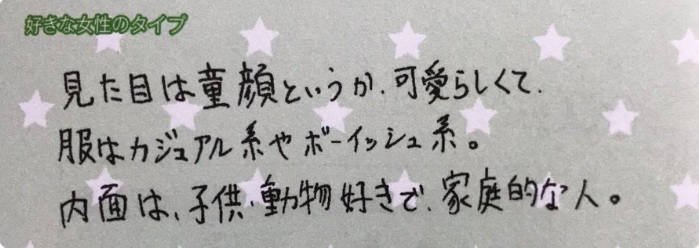 好きな女性のタイプ
見た目は童顔というか、可愛らしくて、
服はカジュアル系やボーイッシュ系。
内面は、子供・動物好きで、家庭的な人。